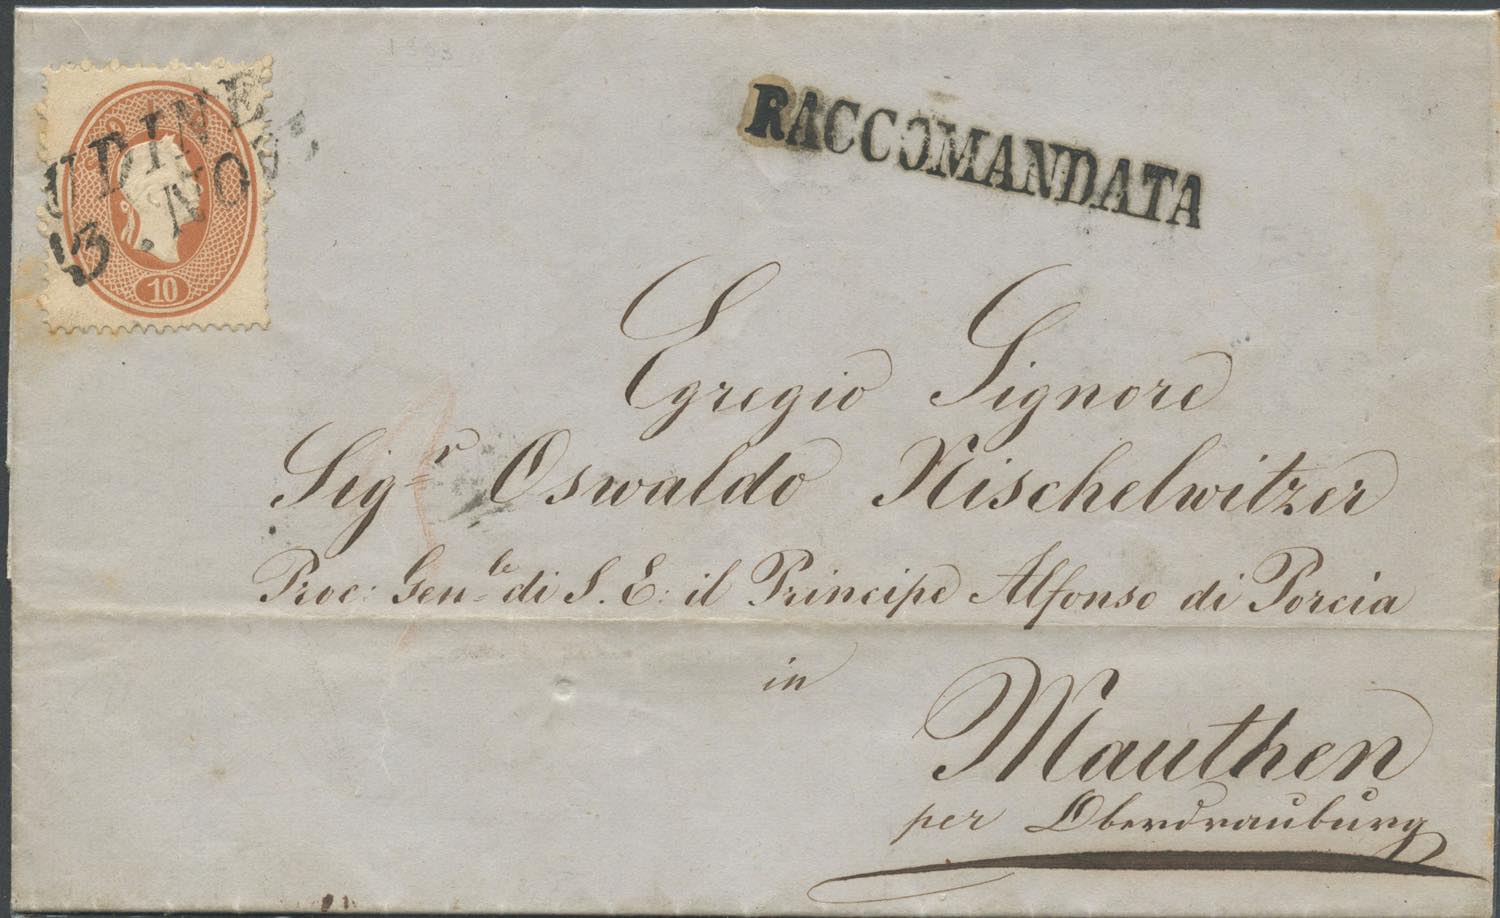 UDINE
13. NOV
10
RACCOMANDATA
Egregio Signore
Sigr Oswaldo Nischelwitzer
Proc: Genle di S. E: il Principe Alfonso di Porcia
in
Mauthen
per Oberdrauburg